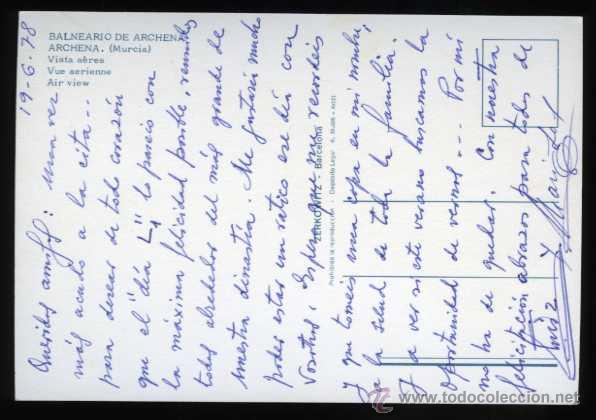 BALNEARIO DE ARCHENA
ARCHENA. (Murcia)
Vista aérea
Vue aerienne
Air view
19-6-78
Queridos amigos: Una vez
más acudo a la cita...
para desear de todo corazón
que el día lo paseis con
la máxima felicidad posible, reunidos
todos alrededor del más grande de
nuestra dinastia. Me gustaría mucho
poder estar un ratico ese día con
Vosotros. Espero que me recordeis
y que tomeis una copa en mi nombre,
a la salud de toda la familia.
Y a ver si este verano buscamos la
oportunidad de vernos... Por mi
no ha de quedar. Con nuestra
felicitación abrazos para todos de
Luis y
ZERKOWITZ - Barcelona
Prohibida la reproducción - Depósito Legal
www.todocoleccion.net